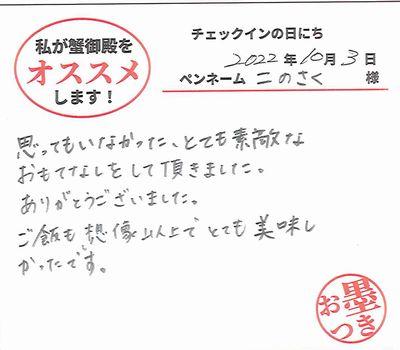 私が蟹御殿を
オススメ
します！
チェックインの日にち
2022年10月3日
ペンネーム 二のさく 様
思ってもいなかった、とても素敵な
おもてなしをして頂きました。
ありがとうございました。
ご飯も想像以上でとても美味し
かったです。
お墨つき